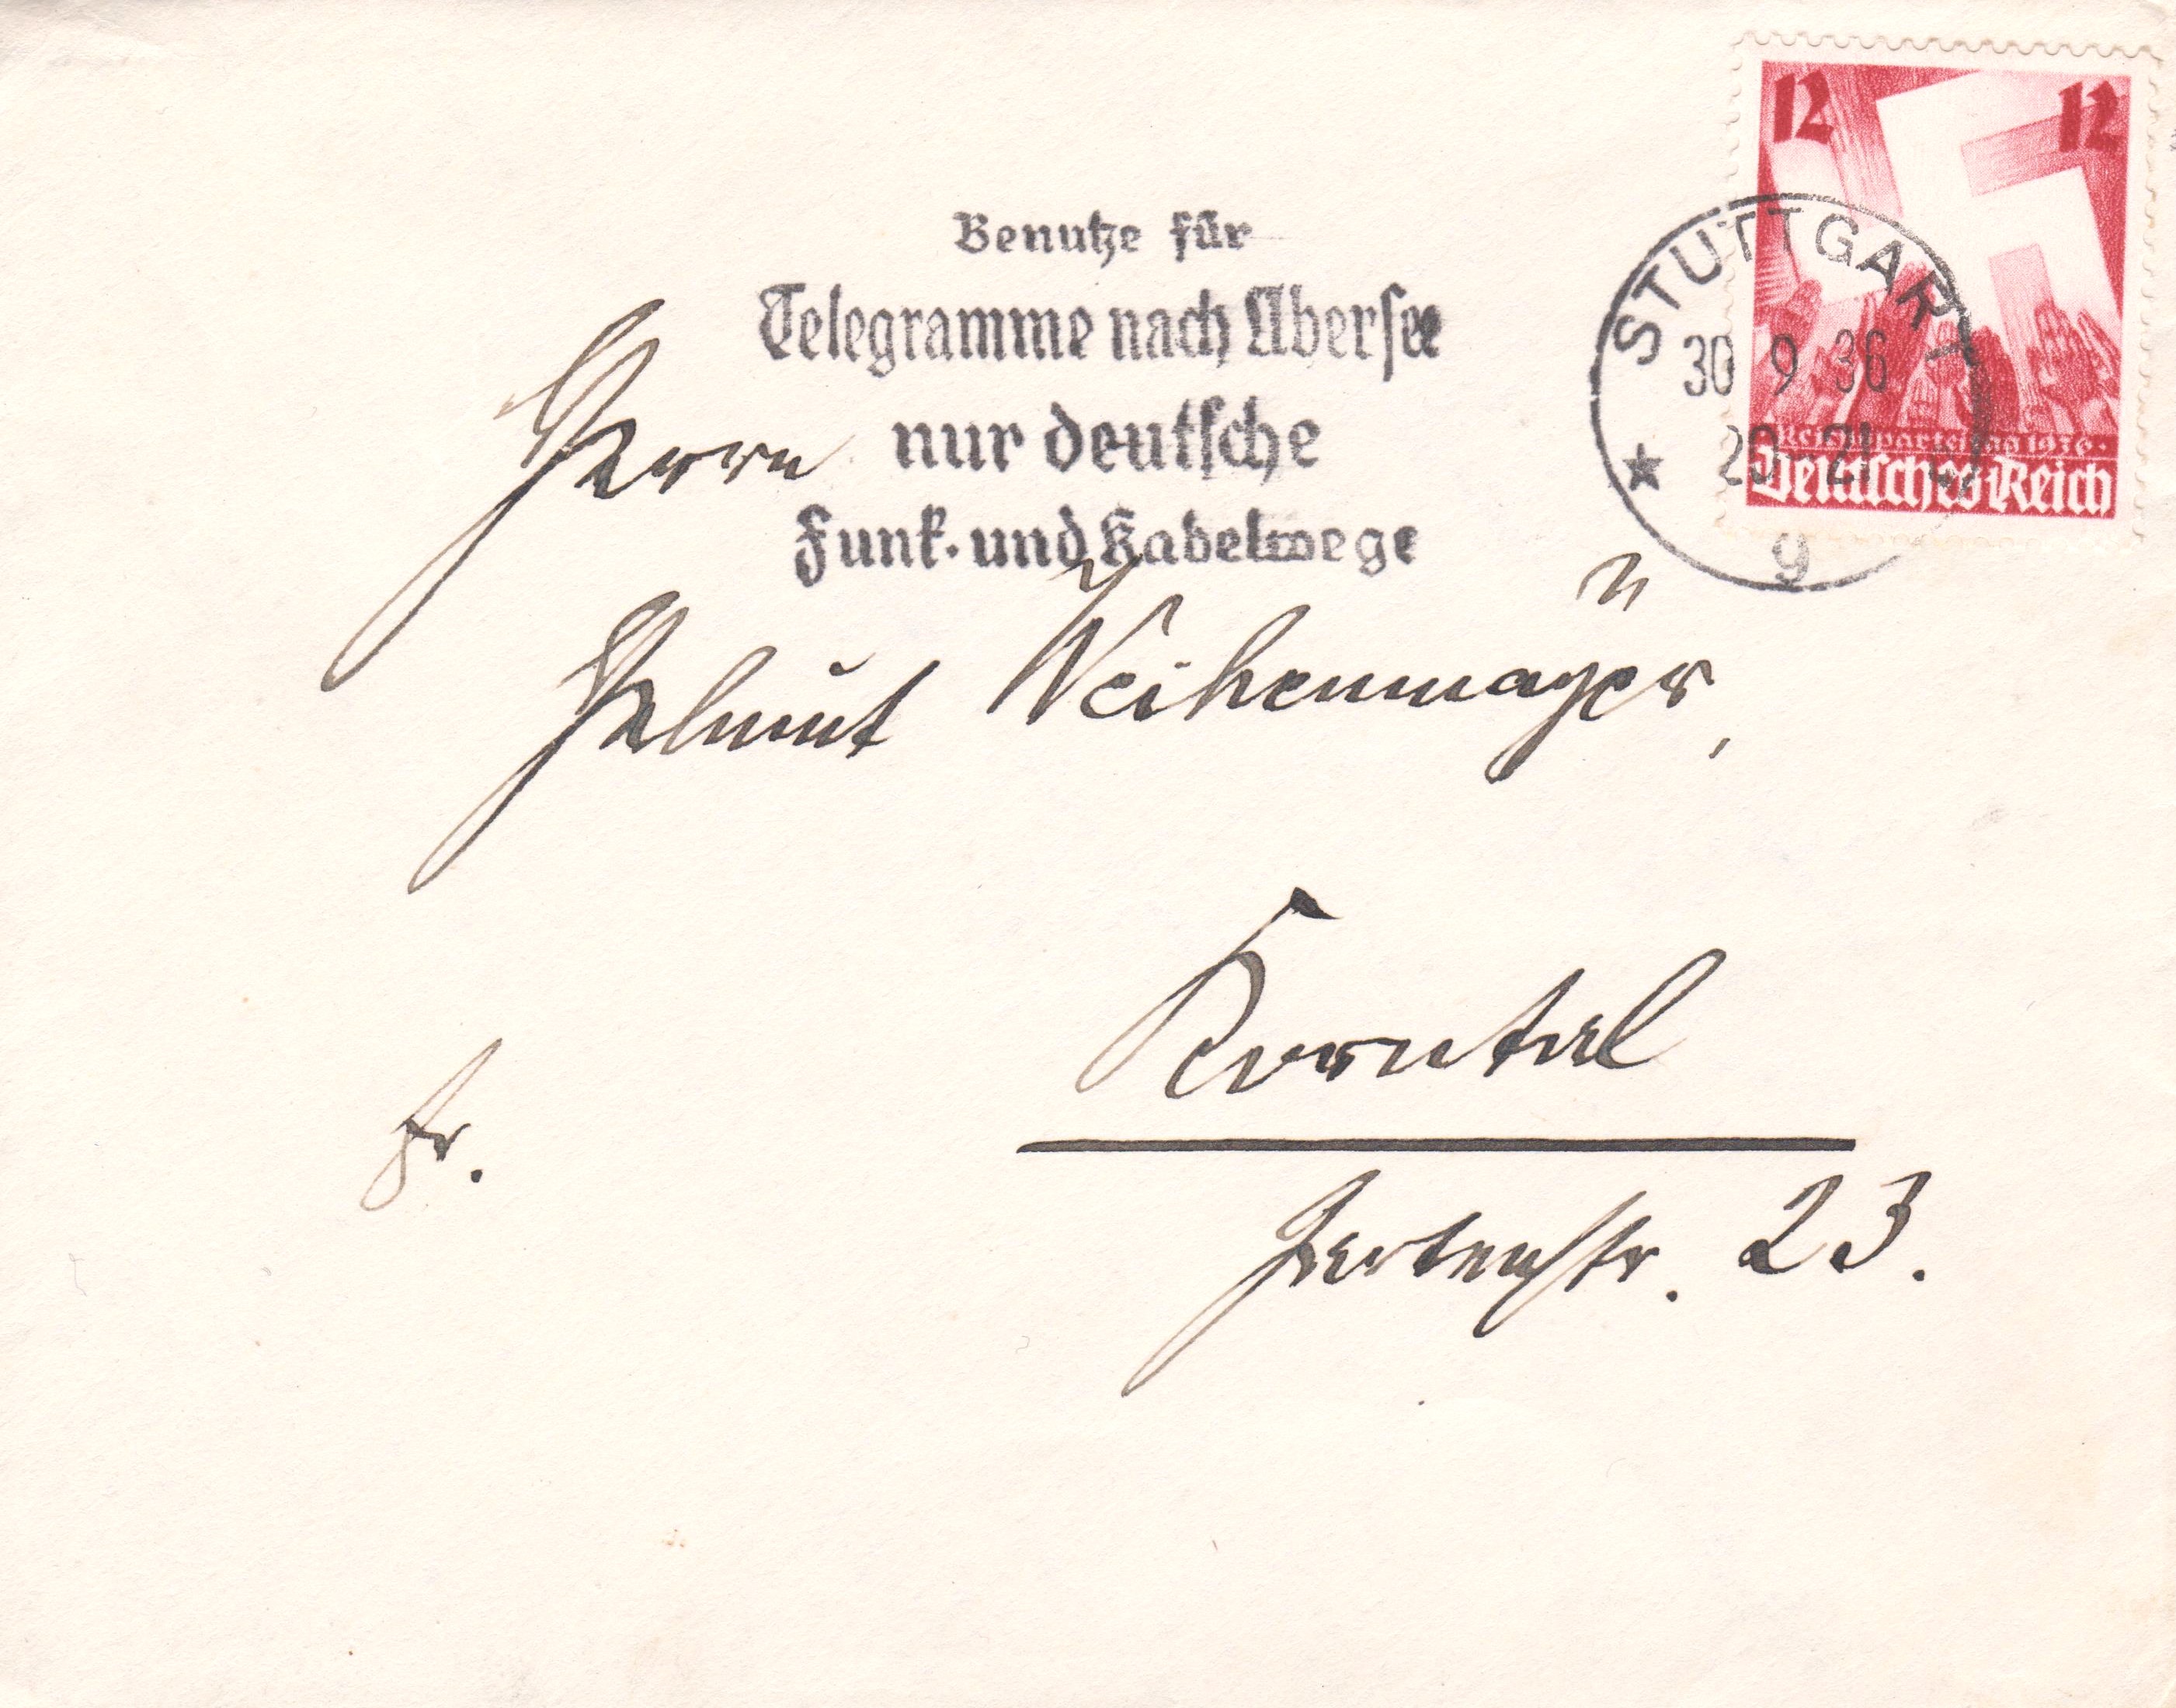 12 12
Benutze für
Telegramme nach Übersee
nur deutsche
Funk- und Kabelwege
STUTTGART
30 9 36
20-21
9
Reichsparteitag 1936
Deutsches Reich
Herrn
Helmut Weihenmayer,
Korntal
Fr.
Gartenstr. 23.